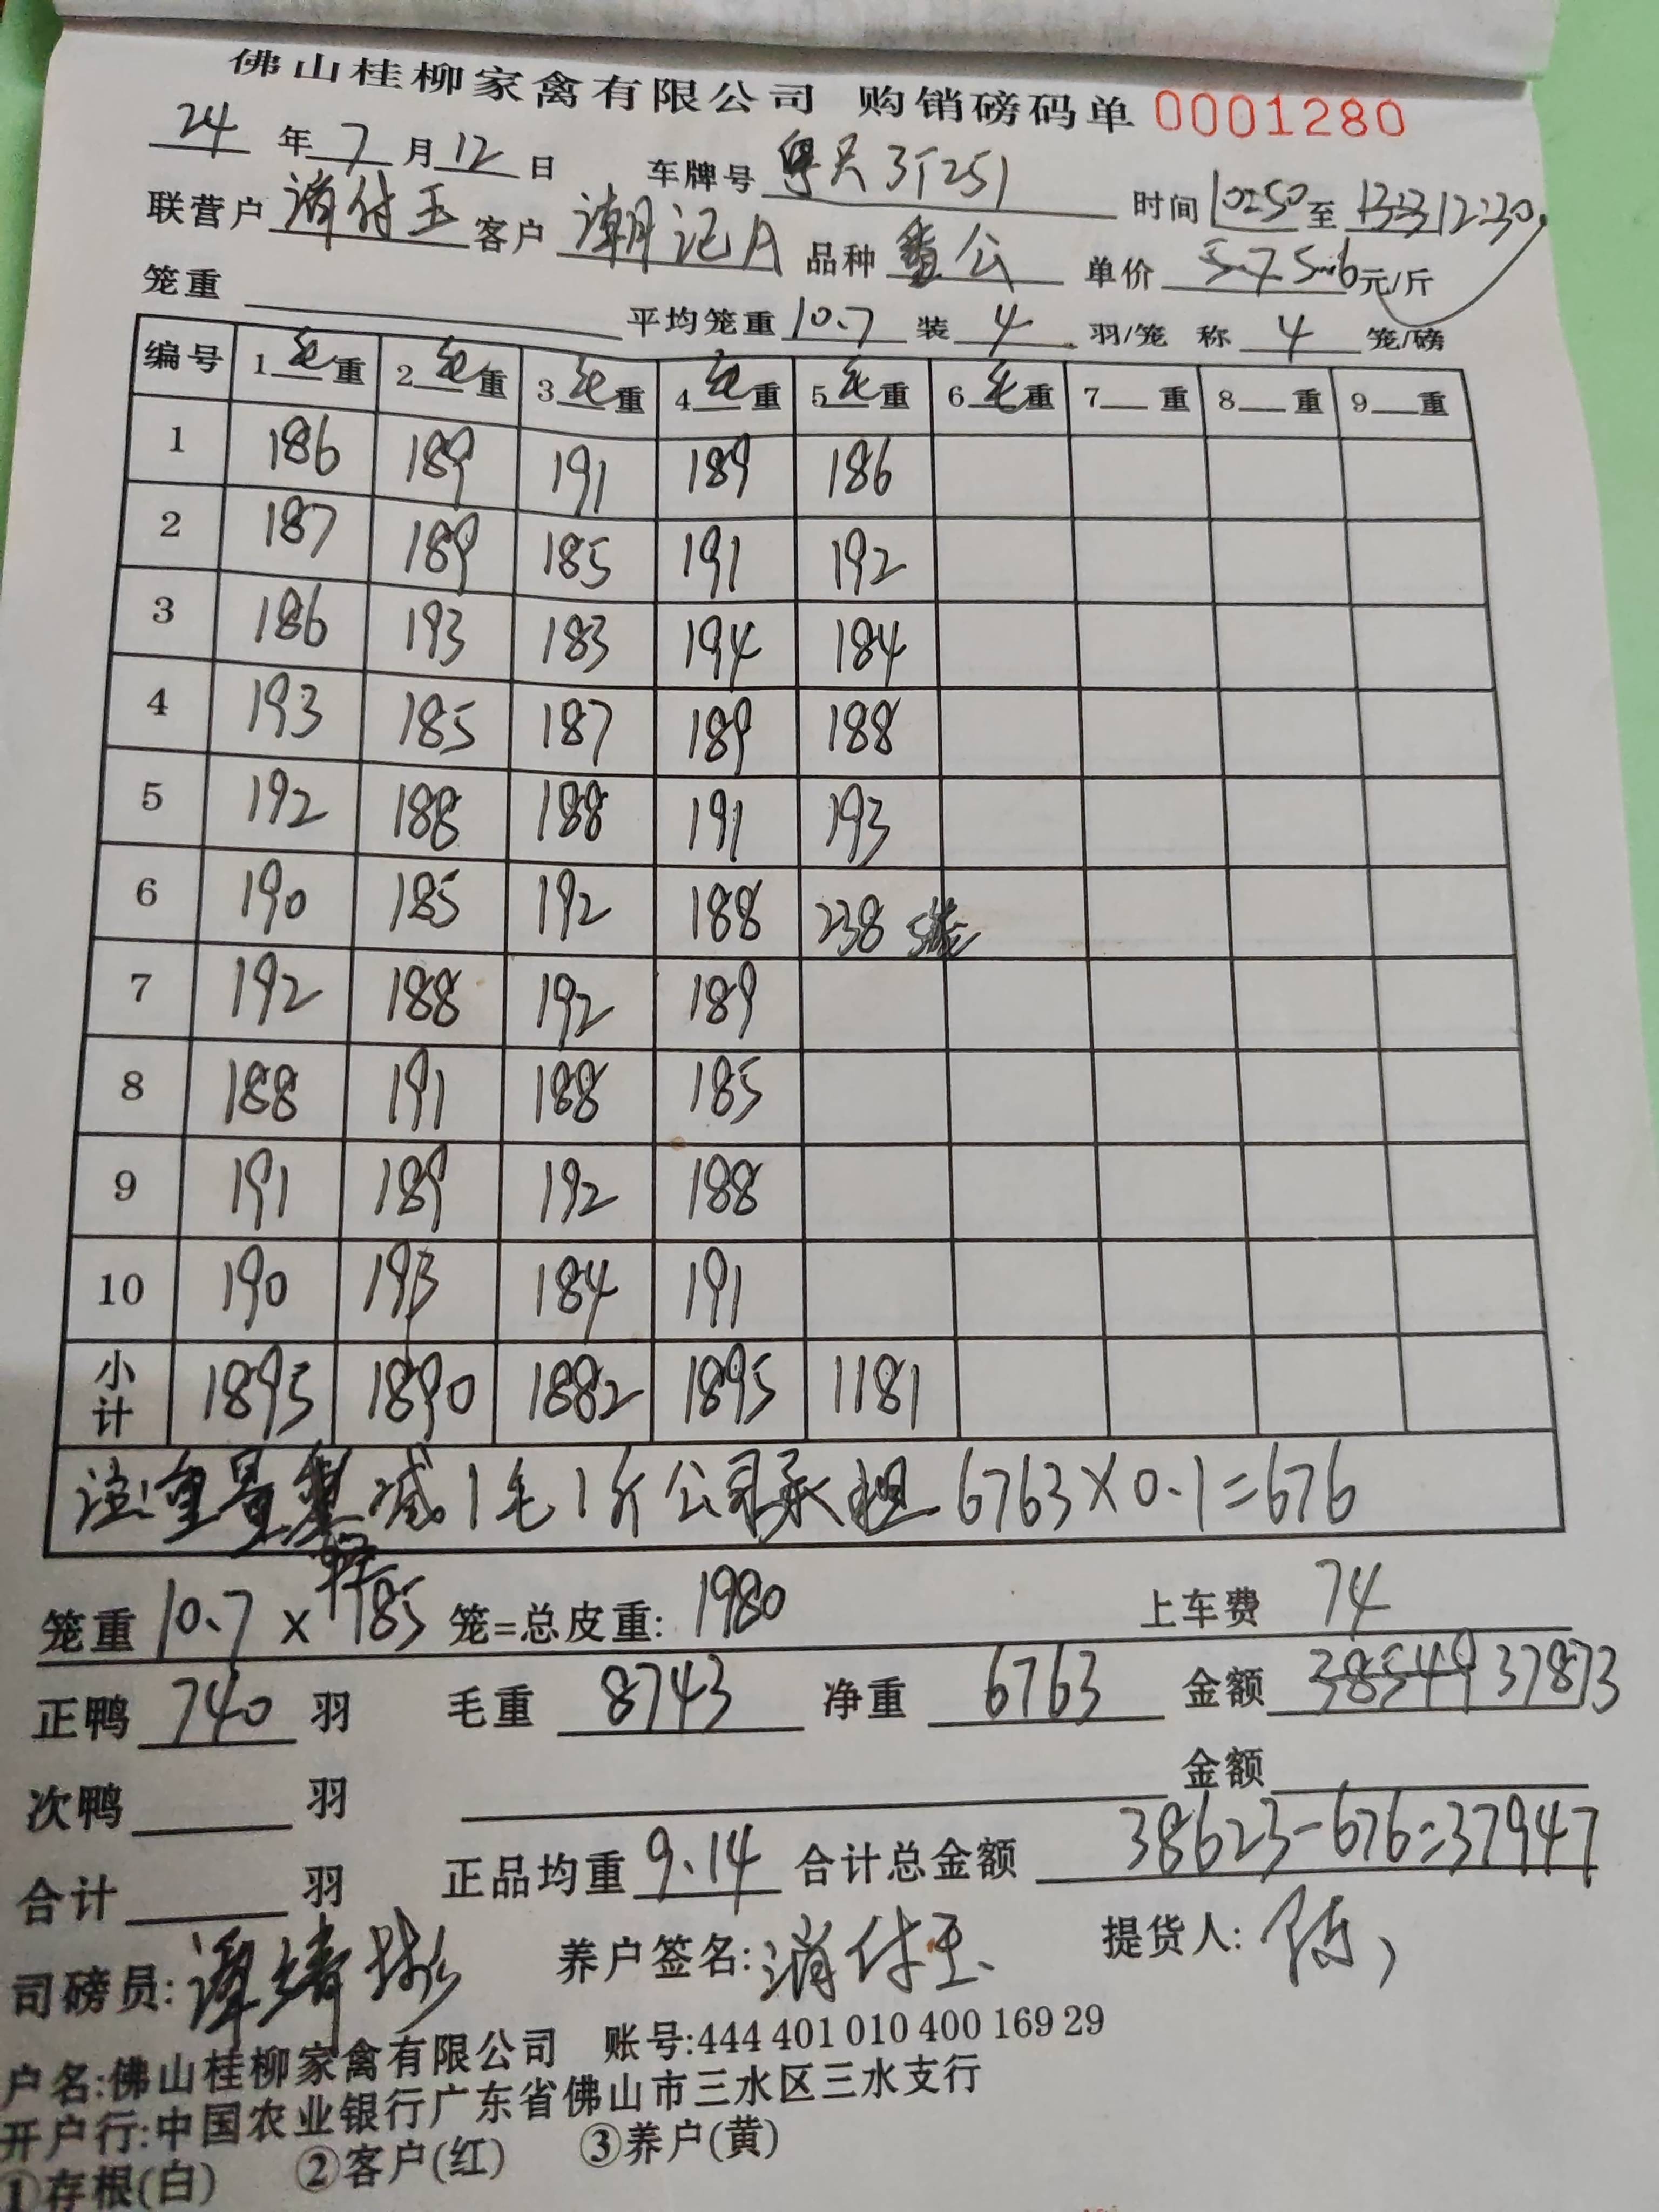 佛山桂柳家禽有限公司 购销磅码单 0001280
24 年 7 月 12 日 车牌号 251 时间 10:50 至 12:30
联营户 消付玉 客户 潮记A 品种 公 单价 5.7 5.6 元/斤
笼重 平均笼重 10.7 装 4 羽/笼 称 4 笼/磅
编号 1毛重 2毛重 3毛重 4毛重 5毛重 6毛重 7 重 8 重 9 重
1 186 189 191 189 186
2 187 189 185 191 192
3 186 193 183 194 184
4 193 185 187 189 188
5 192 188 188 191 193
6 190 185 192 188 238 5笼
7 192 188 192 189
8 188 191 188 185
9 191 189 192 188
10 190 193 184 191
小计 1895 1890 1882 1895 1181
注:重量 减1毛1斤公司承担 6763×0.1=676
笼重 10.7 × 185 笼=总皮重: 1980 上车费 74
正鸭 740 羽 毛重 8743 净重 6763 金额 38549 37873
次鸭 羽 金额
合计 羽 正品均重 9.14 合计总金额 38623-676=37947
司磅员: 谭 养户签名: 消付玉 提货人: 陈
户名:佛山桂柳家禽有限公司 账号:444 401 010 400 169 29
开户行:中国农业银行广东省佛山市三水区三水支行
①存根(白) ②客户(红) ③养户(黄)